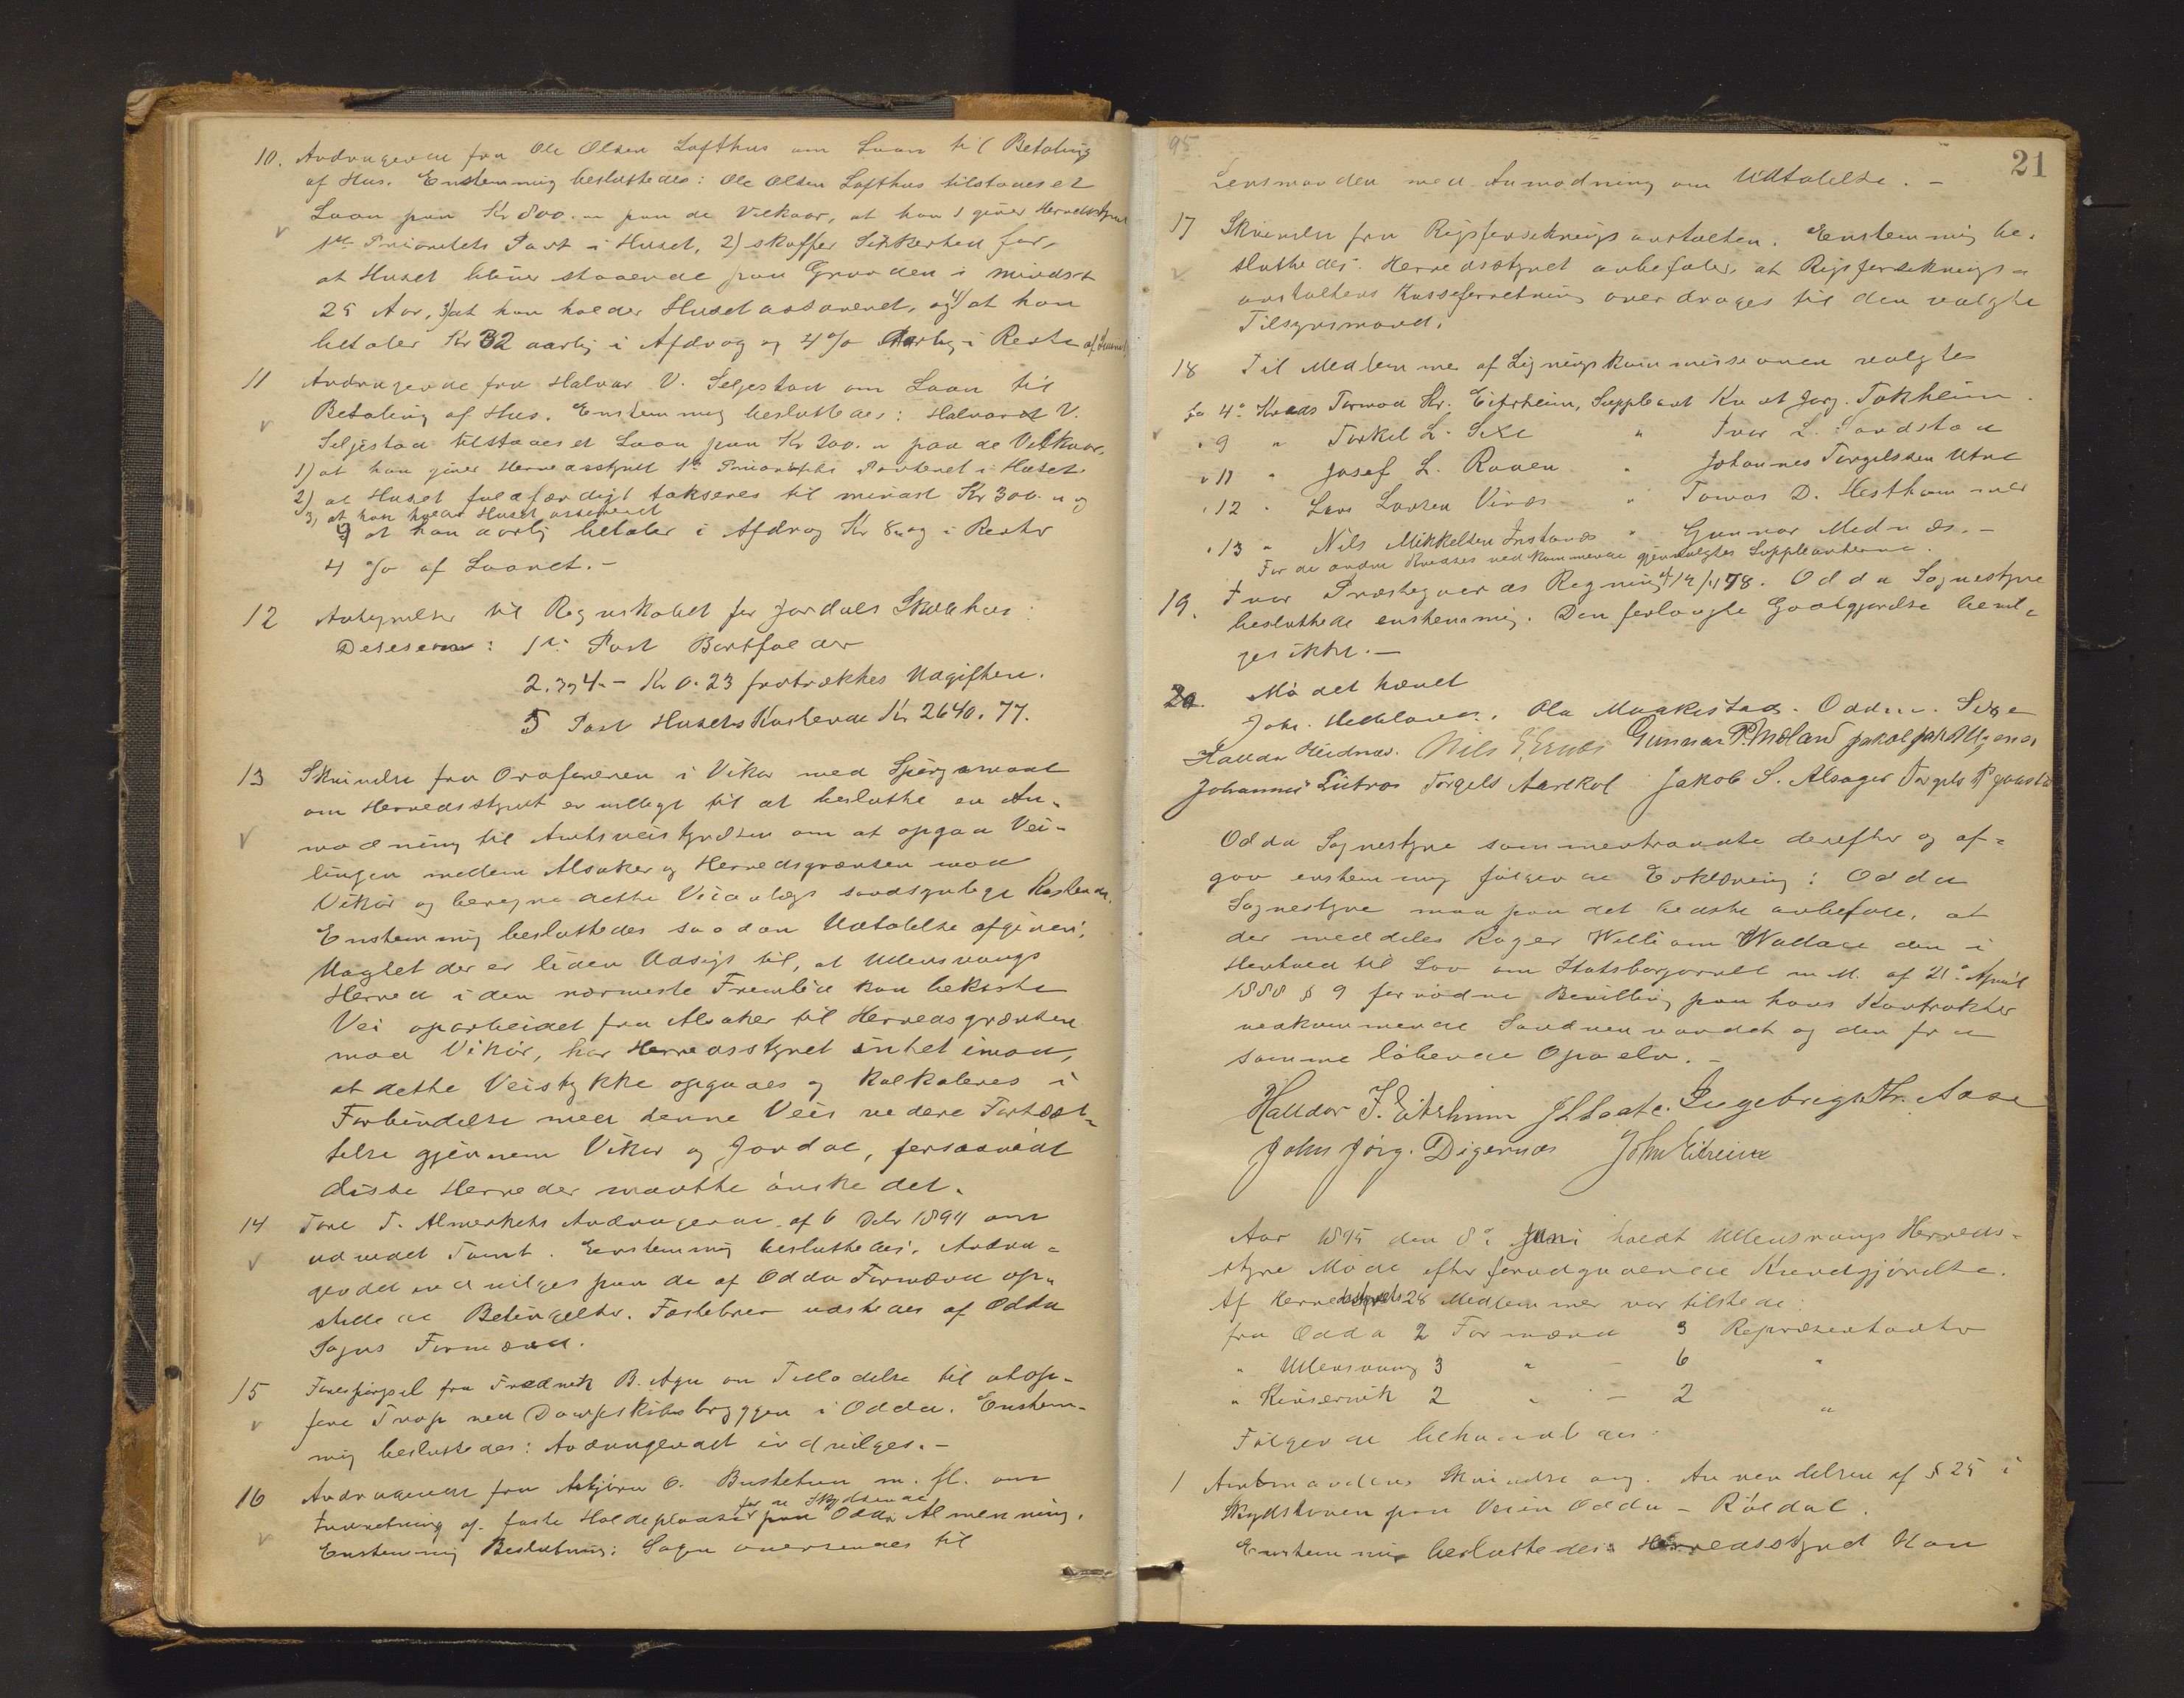 10. Andragende fra Ole Olsen Lofthus om Laan til Betaling
af Hus. Enstemmig besluttedes: Ole Olsen Lofthus tilstaaes et
Laan paa Kr 800.„ paa de Vilkaar, at han 1 giver Herredsstyret
1ste Prioritets Pant i Huset, 2) skaffer Sikkerhed for,
at Huset bliver staaende paa Grunden i mindst
25 Aar, 3) at han holder Huset assureret, og 4) at han
betaler Kr 32 aarlig i Afdrag og 4% Aarlig i Rente af
11 Andragende fra Halvar V. Seljestad om Laan til
Betaling af Hus. Enstemmig besluttedes: Halvard V.
Seljestad tilstaaes et Laan paa Kr 200.„ paa de Vilkaar,
1) at han giver Herredsstyret 1ste Prioritets Panteret i Huset
2) at Huset fuldfærdigt takseres til mindst Kr 300.„ og
3, at han holder Huset assureret
4 at han aarlig betaler i Afdrag Kr 8„ og i Rente
4 % af Laanet. –
12 Antegnelser til Regnskabet for Jordals Skolehus:
Desisem: 1ste Post Bortfalder
2. 3 og 4. – Kr 0.23 fratrækkes Udgiften.
5 Post Husets Kostende Kr 2640.77.
13 Skrivelse fra Ordføreren i Vikør med Spørgsmaal
om Herredsstyret er villigt til at beslutte en An-
modning til Amtsveistyrelsen om at opgaa Vei-
linjen mellem Alsaker og Herredsgrænsen mod
Vikør og beregne dette Veianlægs sandsynlige Kostende.
Enstemmig besluttedes saadan Udtalelse afgiven:
Uagtet der er liden Udsigt til, at Ullensvangs
Herred i den nærmeste Fremtid kan bekoste
Vei oparbeidet fra Alsaker til Herredsgrænsen
mod Vikør, har Herredsstyret intet imod,
at dette Veistykke opgaaes og kalkuleres i
Forbindelse med denne Veis videre Fortsæt-
telse gjennem Vikør og Jondal, forsaavidt
disse Herreder maatte ønske det.
14 Tore T. Almerkets Andragende af 6 Debr 1894 om
udvidet Tomt. Enstemmig besluttedes: Andra-
gendet indvilges paa de af Odda Formænd op-
stillede Betingelser. Festebrev udstedes af Odda
Sogns Formænd.
15 Forespørgsel fra Fredrik B. Aga om Tilladelse til at op-
føre Trap ved Dampskibsbryggen i Odda. Enstem-
mig besluttedes: Andragendet indvilges. –
16 Andragende fra Asbjørn O. Bustetun m. fl. om
for de Skydsende
Indretning af faste Holdepladser paa Odda Almenning.
Enstemmig Beslutning: Sagen oversendes til
95
21
Lensmanden med Anmodning om Udtalelse. –
17 Skrivelse fra Rigsforsikringsanstalten. Enstemmig be-
sluttedes: Herredsstyret anbefaler, at Rigsforsikrings-
anstaltens Kasseforretning overdrages til den valgte
Tilsynsmand.
18 Til Medlemmer af Ligningskommissionen valgtes
for 4de Kreds Tormod Hr. Eitrheim, Suppleant Knut Jørg. Tokheim.
„ 9 „ Torkel L. Sexe „ Ivar L. Sandstad
„ 11 „ Josef L. Raaen „ Johannes Torgilssen Utne
„ 12 „ Lars Larsen Vines „ Tomas D. Hesthammer
„ 13 „ Nils Mikkelsen Instanes „ Gunnar Mednæs. –
For de andre Kredses vedkommende gjenvalgtes Suppleanterne.
19. Ivar Præstegaards Regning af 14/11 78. Odda Sognestyre
besluttede enstemmig: Den forlangte Godtgjørelse bevil-
ges ikke. –
20. Mødet hævet
Joh. Ola Maakestad. Odd Sexe
Halldor Meidnæs. Nils Gunnar P. Jakob
Johannes Lutro Torgels Aarekol Jakob S. Alsager Torgels P
Odda Sognestyre sammentraadte derefter og af-
gav enstemmig følgende Erklæring: Odda
Sognestyre maa paa det bedste anbefale, at
der meddeles Roger William Wallace den i
Henhold til Lov om Statsborgerret m. M. af 21de April
1888 § 9 fornødne Bevilling paa hans Kontrakter
vedkommende Sandvenvandet og den fra
samme løbende Opo elv. –
Halldor J. Eitrheim Ingebrigt Hr. Aase
John Jørg. Digernæs John Eitreim
Aar 1895 den 8de Juni holdt Ullensvangs Herreds-
styre Møde efter forudgaaende Kundgjørelse.
Af Herredsstyrets 28 Medlemmer var tilstede:
fra Odda 2 Formænd 3 Repræsentanter
„ Ullensvang 3 „ – 6 „
„ Kinservik 2 „ – 2 „
Følgende behandledes:
1 Amtmandens Skrivelse ang. Anvendelsen af § 25 i
Skydsloven paa Veien Odda – Røldal.
Enstemmig besluttedes: Herredsstyret kan